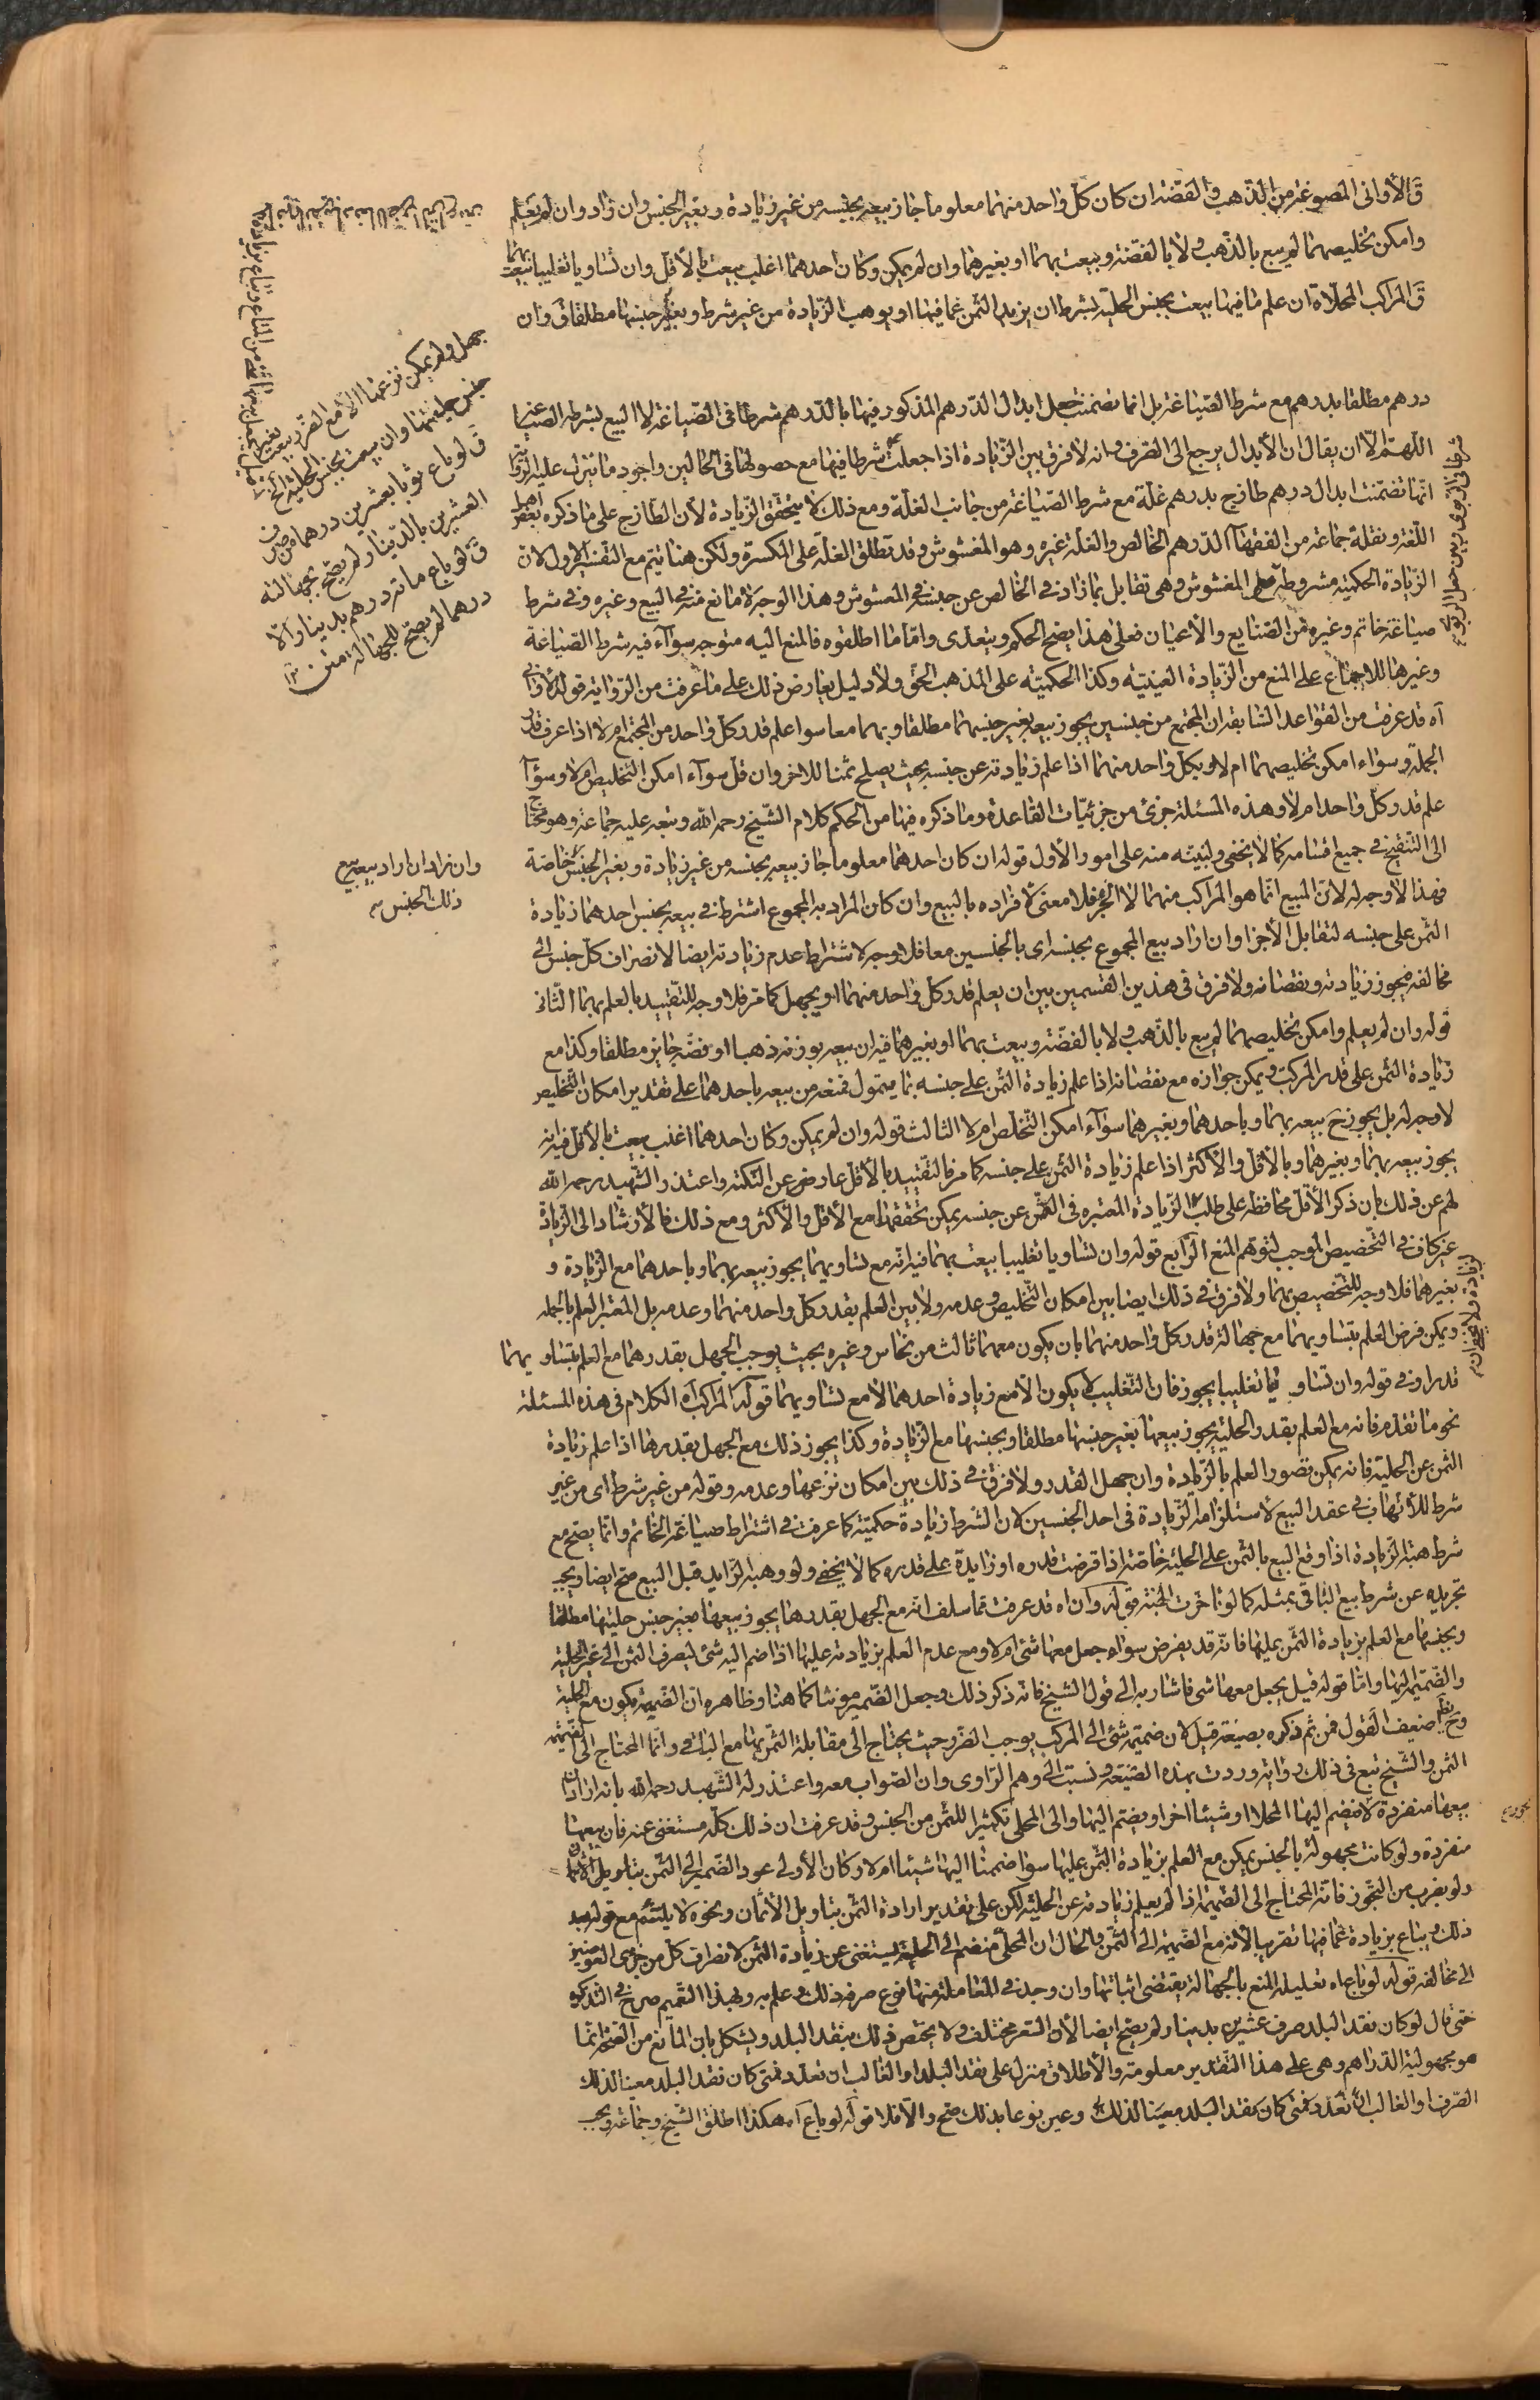 قَ الأوانى المصوغة من الذّهب والفضّة ان كان كلّ واحد منهما معلوما جاز بيعه بجنسه من غير زيادة وبغير الجنس وان زاد وان لم يعلم
وامكن تخليصهما لم يبع بالذّهب ولا بالفضّة وبيعت بهما او بغيرهما وان لم يمكن وكان احدهما اغلب بيعت بالأقلّ وان تساويا تغليبا بيعت بهما
قَ المراكب المحلاة ان علم ما فيها بيعت بجنس الحلية بشرط ان يزيد الثّمن عمّا فيها او يوهب الزّيادة من غير شرط وبغير جنسها مطلقا قَ وان
جهل ولم يمكن نزعها الا مع الضّرر بيعت بغير
جنس حليتها وان بيعت بجنس الحلية
قَ لو باع ثوبا بعشرين درهما من صرف
العشرين بالدّينار لم يصحّ لجهالته
قَ لو باع مائة درهم بدينار الّا
درهما لم يصحّ للجهالة متن
درهم مطلقا بدرهم مع شرط الصّياغة بل انما تضمّنت جعل ابدال الدّرهم المذكور فيها بالدّرهم شرطا فى الصّياغة لا البيع بشرط الصّياغة
اللّهمّ الّا ان يقال ان الأبدال يرجع الى الصّرف وانه لا فرق بين الزّيادة اذا جعلت شرطا فيها مع حصولها فى الحالين واجود ما تنزّل عليه الرّواية
انّها تضمّنت ابدال درهم طازج بدرهم غلّة مع شرط الصّياغة من جانب الغلّة ومع ذلك لا يتحقّق الزّيادة لأن الطّازج على ما ذكره بعض اهل
اللّغة ونقله جماعة من الفقهاء الدّرهم الخالص والغلّة غيره وهو المغشوش وقد تطلق الغلّة على المكسّرة ولكن هنا يتم مع التفسير الأول لانّ
الزّيادة الحكميّة مشروطة المغشوش وهى تقابل بما زاد فى الخالص عن جنسه فى المغشوش وهذا الوجه لا مانع منه فى البيع وغيره وفى شرط
صياغة خاتم وغيره من الصّنايع والأعيان فعلى هذا يصحّ الحكم ويتعدّى وامّا ما اطلقوه فالمنع اليه متوجه سوآء فيه شرط الصّياغة
وغيرها للاجماع على المنع من الزّيادة العينيّة وكذا الحكميّة على المذهب الحقّ ولا دليل يعارض ذلك على ما عرفت من الرّواية قوله الأوانى
آه قد عرفت من القواعد السّابقة ان المجتمع من جنسين يجوز بيعه بغير جنسهما مطلقا وبهما معا سوا علم قدر كلّ واحد من المجتمع ام لا اذا عرف قدر
الجملة وسواء امكن تخليصهما ام لا وبكلّ واحد منهما اذا علم زيادته عن جنسه بحيث يصلح ثمنا للاخر وان قلّ سوآء امكن التخليص ام لا وسوآء
علم قدر كلّ واحد ام لا وهذه المسئلة جزئى من جزئيّات القاعدة وما ذكره فيها من الحكم كلام الشّيخ رحمه الله وتبعه عليه جماعة وهو محتاج
الى التنقيح فى جميع اقسامه كما لا يخفى ولنبّه منه على امور الأول قوله ان كان احدهما معلوما جاز بيعه بجنسه من غير زيادة وبغير الجنس خاصّة
وان زاد ان اراد ببيعه بيع
ذلك الجنس
فهذا لا وجه له لانّ المبيع انّما هو المراكب منهما لا الجزء فلا معنى لافراده بالبيع وان كان المراد به المجموع اشترط فى بيعه بجنس احدهما زيادة
الثّمن على جنسه لتقابل الأجزا وان اراد بيع المجموع بجنسه اى بالجنسين معا فلا وجه لاشتراط عدم زيادته ايضا لانصراف كلّ جنس الى
مخالفه فيجوز زيادته ونقصانه ولا فرق فى هذين القسمين بين ان يعلم قدر كلّ واحد منهما او يجهل كما مرّ فلا وجه للتّقييد بالعلم بهما الثّانى
قوله وان لم يعلم وامكن تخليصهما لم يبع بالذّهب ولا بالفضّة وبيعت بهما او بغيرهما فيه ان بيعه بوزنه ذهبا او فضّة جايز مطلقا وكذا مع
زيادة الثّمن على قدر المركّب ويمكن جوازه مع نقصانه اذا علم زيادة الثّمن على جنسه بما يتموّل فمنعه من بيعه باحدهما على تقدير امكان التّخليص
لا وجه له بل يجوز ح بيعه بهما وباحدهما وبغيرهما سوآء امكن التّخلّص ام لا الثّالث قوله وان لم يمكن وكان احدهما اغلب بيعت بالأقلّ فيه انه
يجوز بيعه بهما وبغيرهما وبالأقلّ والأكثر اذا علم زيادة الثّمن على جنسه كما مرّ فالتّقييد بالأقلّ عارض عن النّكتة واعتذر الشّهيد رحمه الله
لهم عن ذلك بان ذكر الأقلّ محافظة على طلب الزّيادة المعتبره فى الثّمن عن جنسه يمكن تحقّقها مع الأقلّ والأكثر ومع ذلك فالأرشاد الى الزّيادة
غير كاف فى التّخصيص الموجب لتوهّم المنع الرّابع قوله وان تساويا تغليبا بيعت بهما فيه انّه مع تساويهما يجوز بيعه بهما وباحدهما مع الزّيادة و
بغيرهما فلا وجه للتّخصيص بهما ولا فرق فى ذلك ايضا بين امكان التّخليص وعدمه ولا بين العلم بقدر كلّ واحد منهما وعدمه بل المعتبر العلم بالجملة
ويمكن فرض العلم بتساويهما مع جهالة قدر كلّ واحد منهما بان يكون معهما ثالث من نحاس وغيره بحيث يوجب الجهل بقدرهما مع العلم بتساويهما
قدرا وفى قوله وان تساويا تغليبا يجوز فان التّغليب لا يكون الا مع زيادة احدهما لا مع تساويهما قوله المراكب آه الكلام فى هذه المسئلة
نحو ما تقدّم فانه مع العلم بقدر الحلية يجوز بيعها بغير جنسها مطلقا وبجنسها مع الزّيادة وكذا يجوز ذلك مع الجهل بقدرها اذا علم زيادة
الثّمن عن الحلية فانه يمكن تصور العلم بالزّيادة وان جهل القدر ولا فرق فى ذلك بين امكان نزعها وعدمه وقوله من غير شرط اى من غير
شرط للاتّهاب فى عقد البيع لاستلزامه الزّيادة فى احد الجنسين لان الشّرط زيادة حكميّة كما عرفت فى اشتراط صياغة الخاتم وانّما يصحّ مع
شرط هبة الزّيادة اذا وقع البيع بالثّمن على الحلية خاصّة اذا فرضت قدره او زايدة على قدره كما لا يخفى ولو وهبه الزّايد قبل البيع صحّ ايضا ويجب
تجريده عن شرط بيع الباقى بمثله كما لو تاخّرت الهبة قوله وان آه قد عرفت ممّا سلف انّه مع الجهل بقدرها يجوز بيعها بغير جنس حليتها مطلقا
وبجنسها مع العلم بزيادة الثّمن عليها فانّه قد يفرض سواء جعل معها شئ ام لا ومع عدم العلم بزيادته عليها اذا ضم اليه شئ ليصرف الثّمن الى غير الحلية
والضّميمة اليها وامّا قوله قيل يجعل معها شى فاشار به الى قول الشّيخ فانّه ذكر ذلك وجعل الضّمير مونثا كما هنا وظاهره انّ الضّميمة يكون مع الحلية
وح يظهر ضعف القول فمن ثم ذكره بصيغة قيل لان ضميمة شئ الى المركّب يوجب الضّرر حيث يحتاج الى مقابلة الثّمن بها مع الباقى وانّما المحتاج الى الضّميمة
الثمن والشّيخ تبع فى ذلك رواية وردت بهذه الصّيغة ونسبت الى وهم الرّاوى وان الصّواب معه واعتذر له الشّهيد رحمه الله بانه اراد ان
بيعها منفردة لا فيضم اليها المحلّا او شيئا اخر او يضم اليها والى المحلى تكثيرا للثّمن من الجنس وقد عرفت ان ذلك كلّه مستغنى عنه فان بيعها
منفردة ولو كانت مجهولة بالجنس يمكن مع العلم بزيادة الثّمن عليها سوا ضممنا اليها شيئا ام لا وكان الأولى عود الضّمير الى الثّمن بتاويل الأثمان
ولو بضرب من التّجوز فانّه المحتاج الى الضّميمة اذا لم يعلم زيادته عن الحلية لكن على تقدير ارادة الثّمن بتاويل الأثمان ونحوه لا يلتئم مع قوله بعد
ذلك ويباع بزيادة عمّا فيها تقريبا لأنه مع الضّميمة الى الثّمن والحال ان المحلّى منضم الى الحلية يستغنى عن زيادة الثّمن لانصراف كلّ من جزئى العوضين
الى مخالفه قوله لو باع آه تعليله المنع بالجهالة يقتضى اثباتها وان وجد فى المعاملة منها نوع صرفه ذلك وعلم به وبهذا التّعميم صرّح فى التّذكرة
حتى قال لو كان نقد البلد صرف عشرين بدينار لم يصح ايضا لأن السّعر مختلف ولا يختص ذلك بنقد البلد ويشكل بان المانع من الصّحة انّما
هو مجهولية الدّراهم وهى على هذا التّقدير معلومة والأطلاق منزل على نقد البلد او الغالب ان تعدّد فمتى كان نقد البلد معينا لذلك
الصّرف او الغالب ان تعدّد فمتى كان نقد البلد معيّنا لذلك وعين نوعا بذلك صحّ والّا فلا قوله لو باع آه هكذا اطلق الشّيخ وجماعة ويجب